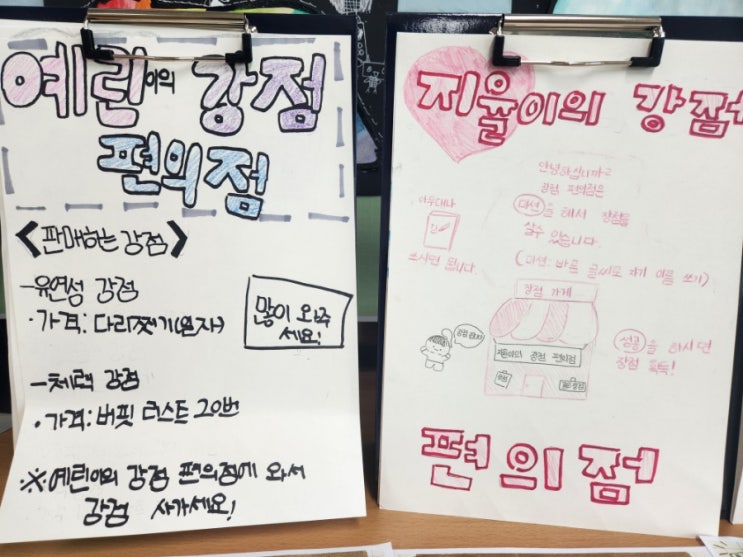 예린이의 강점
편의점
<판매하는 강점>
-유연성 강점
· 가격: 다리찢기(일자)
많이 와주
세요!
-체력 강점
· 가격: 버핏 테스트 20번
※예린이의 강점 편의점에 와서
강점 사가세요!
지율이의 강점
안녕하십니까?
강점 편의점은
미션을 해서 강점을
살수 있습니다.
아무데나
쓰시면 됩니다.
(미션: 바른 글씨로 자기 이름 쓰기)
강점 가게
지율이의 강점 편의점
성공을 하시면
강점 획득!
편의점